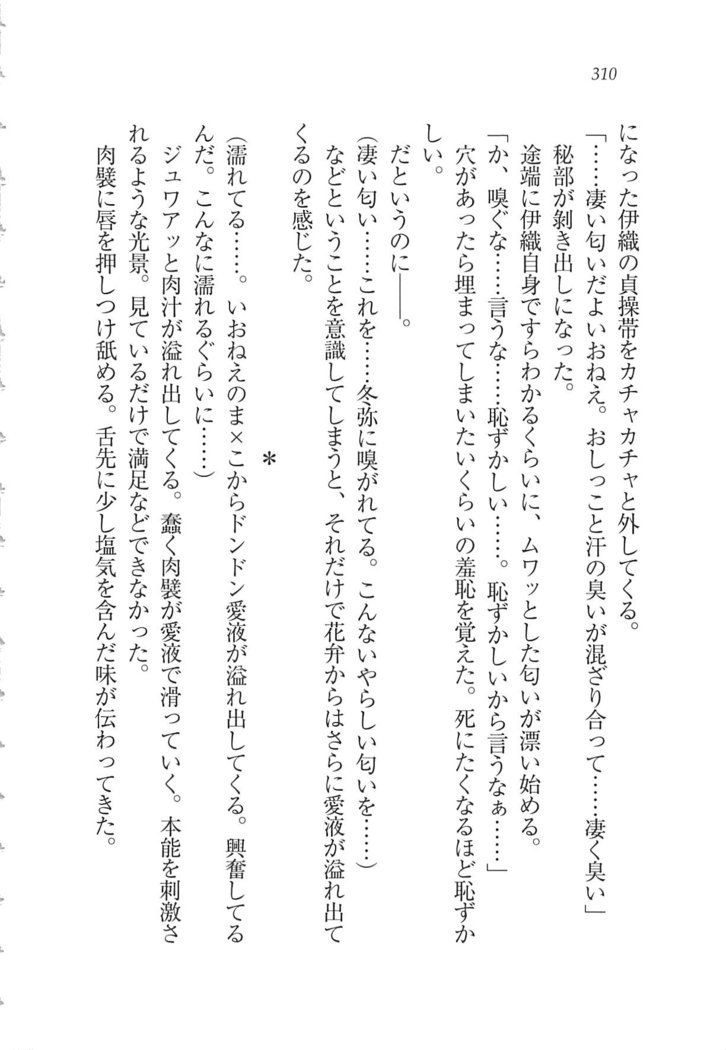 310
になった伊織の貞操帯をカチャカチャと外してくる。
「……凄い匂いだよいおねえ。おしっこと汗の臭いが混ざり合って……凄く臭い」
秘部が剥き出しになった。
途端に伊織自身ですらわかるくらいに、ムワッとした匂いが漂い始める。
「か、嗅ぐな……言うな……恥ずかしい……。恥ずかしいから言うなぁ……」
穴があったら埋まってしまいたいくらいの羞恥を覚えた。死にたくなるほど恥ずか
しい。
だというのに――。
(凄い匂い……これを……冬弥に嗅がれてる。こんないやらしい匂いを……)
などということを意識してしまうと、それだけで花弁からはさらに愛液が溢れ出て
くるのを感じた。
＊
(濡れてる……。いおねえのま×こからドンドン愛液が溢れ出してくる。興奮してる
んだ。こんなに濡れるぐらいに……)
ジュワアッと肉汁が溢れ出してくる。蠢く肉襞が愛液で滑っていく。本能を刺激さ
れるような光景。見ているだけで満足などできなかった。
肉襞に唇を押しつけ舐める。舌先に少し塩気を含んだ味が伝わってきた。